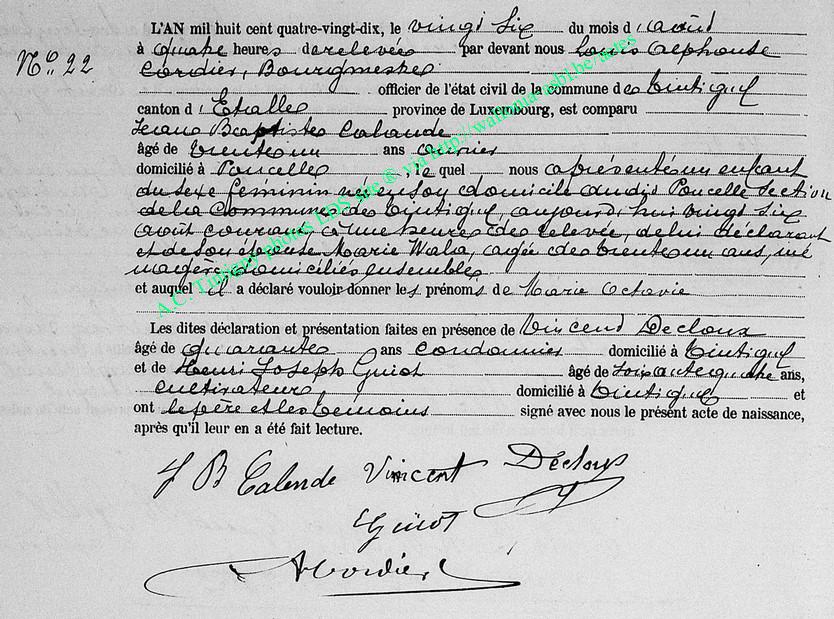 L'AN mil huit cent quatre-vingt-dix, le vingt six du mois d'août
N° 22
à quatre heures de relevée par devant nous Louis Alphonse
Cordier, Bourgmestre
officier de l'état civil de la commune de Tintigny
canton d'Etalle province de Luxembourg, est comparu
Jean Baptiste Calande
âgé de trente un ans ouvrier
domicilié à Poncelle le quel nous a présenté un enfant
du sexe féminin né en son domicile au dit Poncelle section
de la Commune de Tintigny, aujourd'hui vingt six
août courant à une heure de relevée, de lui déclarant
et de son épouse Marie Wala, agée de trente un ans, mé
nagère domiciliés ensemble
et auquel il a déclaré vouloir donner les prénoms de Marie Octavie
Les dites déclaration et présentation faites en présence de Vincend Decloux
âgé de quarante ans cordonnier domicilié à Tintigny
et de Henri Joseph Guiot âgé de soixante quatre ans,
cultivateur domicilié à Tintigny et
ont le père et les témoins signé avec nous le présent acte de naissance,
après qu'il leur en a été fait lecture.
J B Calende Vincent Décloux
Guiot
A Cordier
A.C. Tintigny photos LDS site ® via http://wallonia-asbl.be/actes